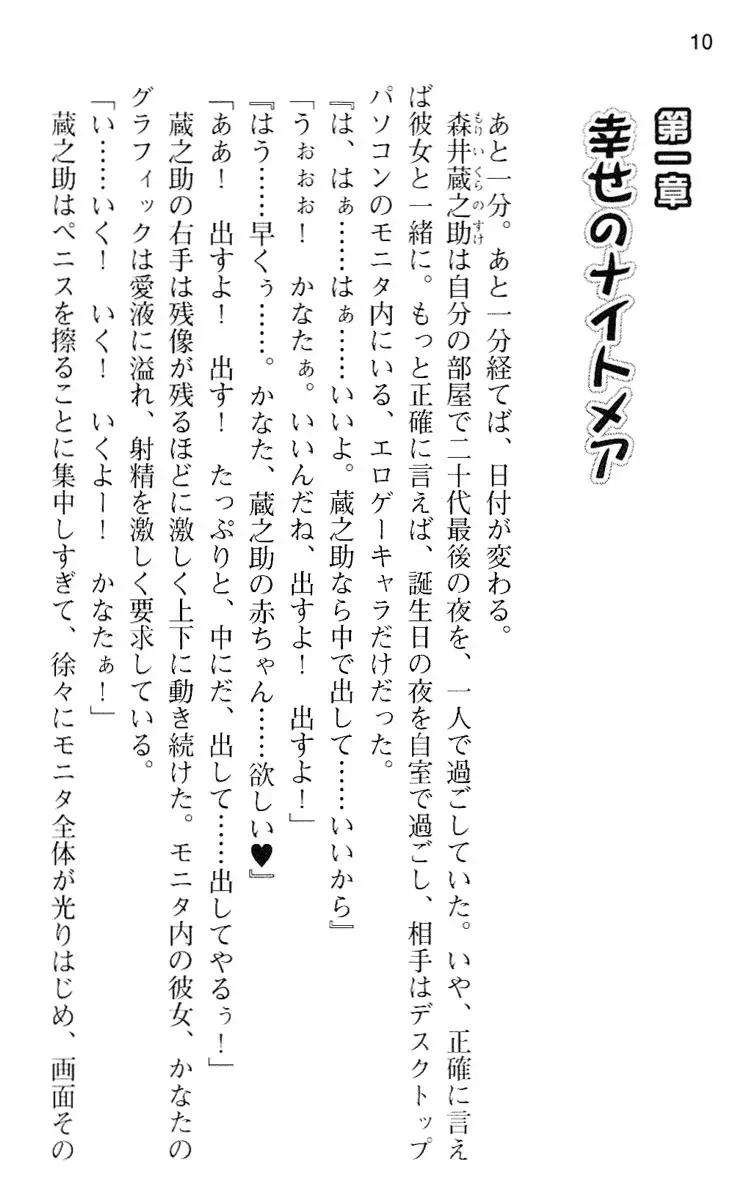 10
第一章
幸せのナイトメア
あと一分。あと一分経てば、日付が変わる。
森井蔵之助は自分の部屋で二十代最後の夜を、一人で過ごしていた。いや、正確に言え
もりいくらのすけ
ば彼女と一緒に。もっと正確に言えば、誕生日の夜を自室で過ごし、相手はデスクトップ
パソコンのモニタ内にいる、エロゲーキャラだけだった。
『は、はぁ……はぁ……いいよ。蔵之助なら中で出して……いいから』
「うぉぉぉ！　かなたぁ。いいんだね、出すよ！　出すよ！」
『はう……早くぅ……。かなた、蔵之助の赤ちゃん……欲しい♥』
「ああ！　出すよ！　出す！　たっぷりと、中にだ、出して……出してやるぅ！」
蔵之助の右手は残像が残るほどに激しく上下に動き続けた。モニタ内の彼女、かなたの
グラフィックは愛液に溢れ、射精を激しく要求している。
「い……いく！　いく！　いくよー！　かなたぁ！」
蔵之助はペニスを擦ることに集中しすぎて、徐々にモニタ全体が光りはじめ、画面その